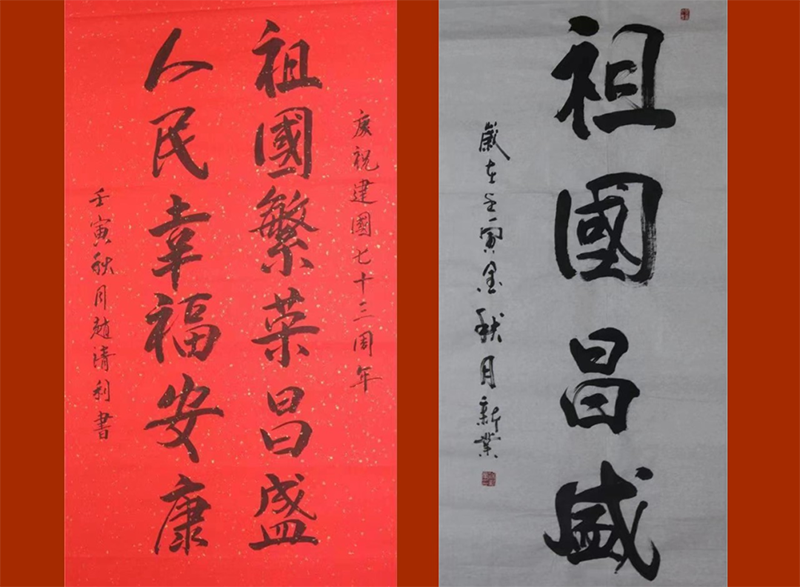 庆祝建國七十三周年
祖國繁荣昌盛
人民幸福安康
壬寅秋月趙清利書
祖國昌盛
歲在壬寅金秋月新業